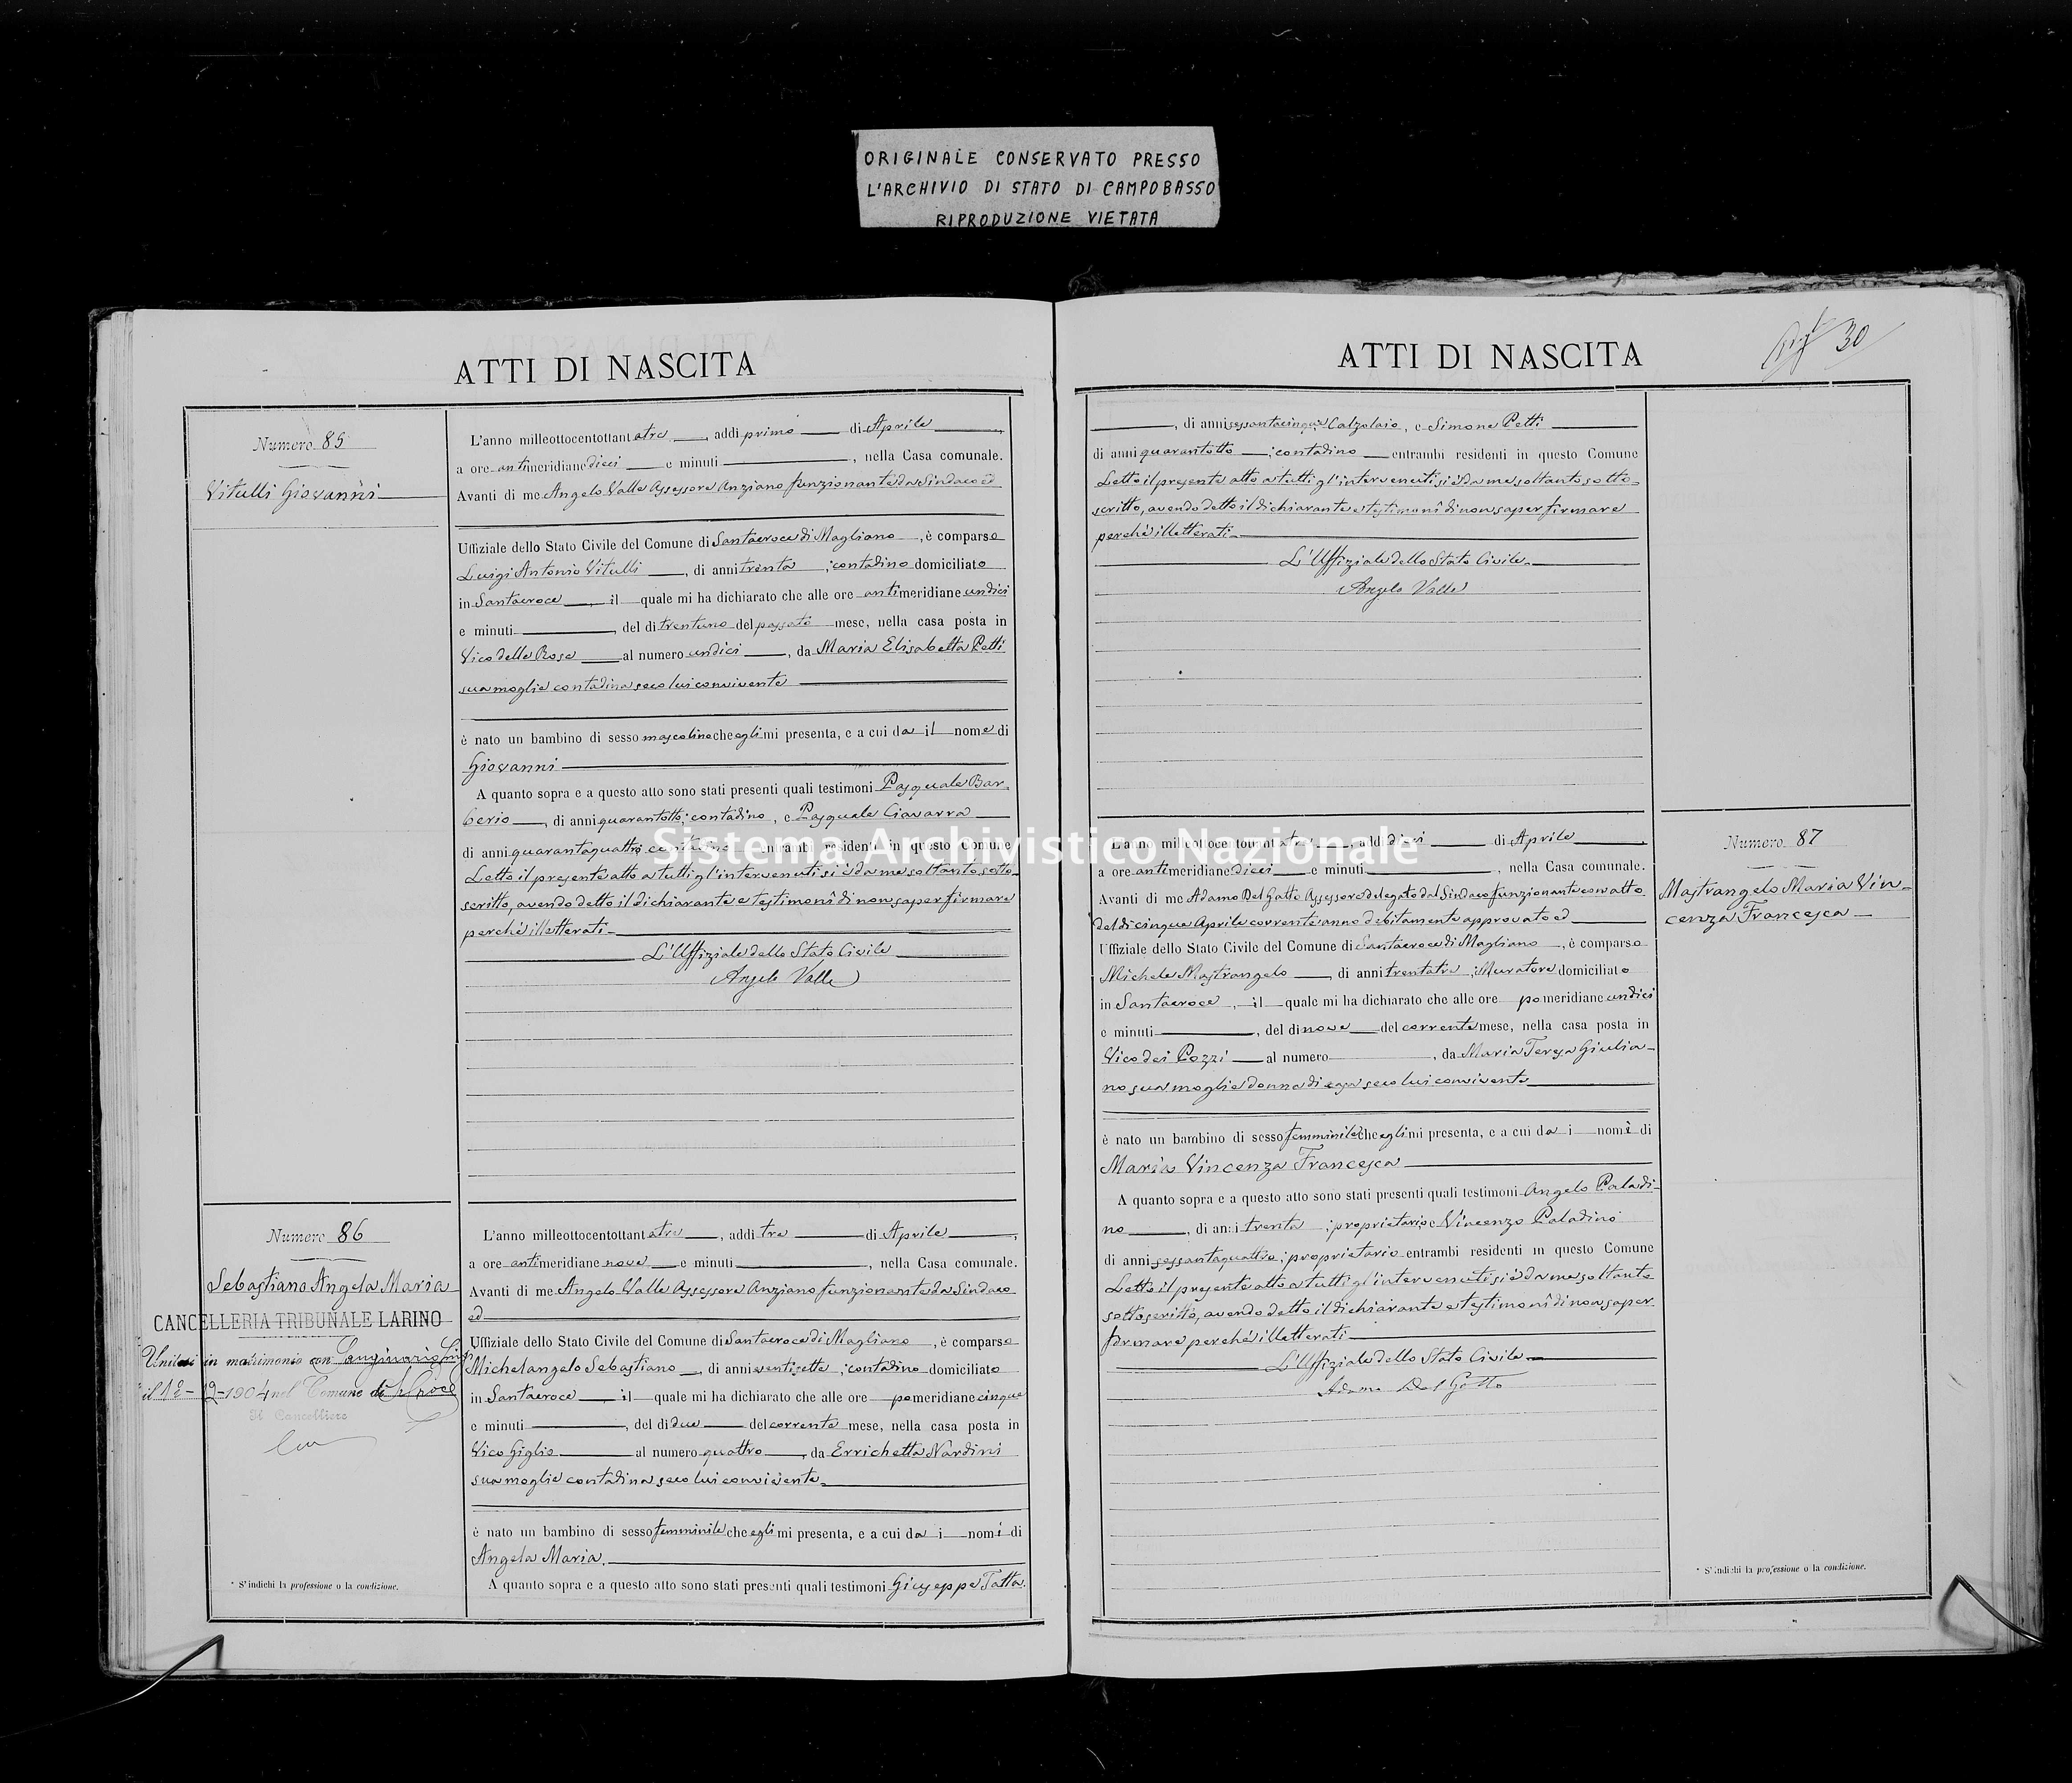 ORIGINALE CONSERVATO PRESSO
L'ARCHIVIO DI STATO DI CAMPOBASSO
RIPRODUZIONE VIETATA
ATTI DI NASCITA
Numero 85
Vitulli Giovanni
L'anno milleottocentottantatre, addì primo di Aprile,
a ore antimeridiane dieci e minuti, nella Casa comunale.
Avanti di me Angelo Valle Assessore Anziano funzionante da Sindaco ed
Uffiziale dello Stato Civile del Comune di Santacroce di Magliano, è comparso
Luigi Antonio Vitulli, di anni trenta; contadino domiciliato
in Santacroce, il quale mi ha dichiarato che alle ore antimeridiane undici
e minuti, del dì trentuno del passato mese, nella casa posta in
Vico delle Rose al numero undici, da Maria Elisabetta Petti
sua moglie contadina seco lui convivente
è nato un bambino di sesso mascolino che egli mi presenta, e a cui da il nome di
Giovanni
A quanto sopra e a questo atto sono stati presenti quali testimoni Pasquale Bar-
berio, di anni quarantotto; contadino, e Pasquale Ciavarra
di anni quarantaquattro; contadino entrambi residenti in questo Comune
Letto il presente atto a tutti gl'intervenuti si è da me soltanto sotto-
scritto, avendo detto il dichiarante e testimonî di non saper firmare
perchè illetterati.
L'Uffiziale dello Stato Civile
Angelo Valle
Numero 86
Sebastiano Angela Maria
CANCELLERIA TRIBUNALE LARINO
Unitasi in matrimonio con
il 12-1904 nel Comune di S. Croce
Il Cancelliere
L'anno milleottocentottantatre, addì tre di Aprile,
a ore antimeridiane nove e minuti, nella Casa comunale.
Avanti di me Angelo Valle Assessore Anziano funzionante da Sindaco
ed
Uffiziale dello Stato Civile del Comune di Santacroce di Magliano, è comparso
Michelangelo Sebastiano, di anni ventisette; contadino domiciliato
in Santacroce il quale mi ha dichiarato che alle ore pomeridiane cinque
e minuti, del dì due del corrente mese, nella casa posta in
Vico Giglio al numero quattro, da Errichetta Nardini
sua moglie contadina seco lui convivente.
è nato un bambino di sesso femminile che egli mi presenta, e a cui da i nomi di
Angela Maria.
A quanto sopra e a questo atto sono stati presenti quali testimoni Giuseppe Tatta
* S'indichi la professione o la condizione.
ATTI DI NASCITA
30
, di anni sessantacinque; Calzolaio, e Simone Petti
di anni quarantotto; contadino entrambi residenti in questo Comune
Letto il presente atto a tutti gl'intervenuti si è da me soltanto sotto-
scritto, avendo detto il dichiarante e testimonî di non saper firmare
perchè illetterati.
L'Uffiziale dello Stato Civile.
Angelo Valle
Numero 87
Mastrangelo Maria Vin-
cenza Francesca
L'anno milleottocentottantatre, addì dieci di Aprile,
a ore antimeridiane dieci e minuti, nella Casa comunale.
Avanti di me Adamo Del Gatto Assessore delegato dal Sindaco funzionante con atto
del dì cinque Aprile corrente anno debitamente approvato ed
Uffiziale dello Stato Civile del Comune di Santacroce di Magliano, è comparso
Michele Mastrangelo, di anni trentatre; Muratore domiciliato
in Santacroce, il quale mi ha dichiarato che alle ore pomeridiane undici
e minuti, del dì nove del corrente mese, nella casa posta in
Vico dei Pozzi al numero, da Maria Teresa Giulia-
no sua moglie donna di casa seco lui convivente
è nato un bambino di sesso femminile che egli mi presenta, e a cui da i nomi di
Maria Vincenza Francesca
A quanto sopra e a questo atto sono stati presenti quali testimoni Angelo Paladi-
no, di anni trenta; proprietario, e Vincenzo Paladino
di anni sessantaquattro; proprietario entrambi residenti in questo Comune
Letto il presente atto a tutti gl'intervenuti si è da me soltanto
sottoscritto, avendo detto il dichiarante e testimonî di non saper
firmare perchè illetterati
L'Uffiziale dello Stato Civile
Adamo Del Gatto
* S'indichi la professione o la condizione.
Sistema Archivistico Nazionale